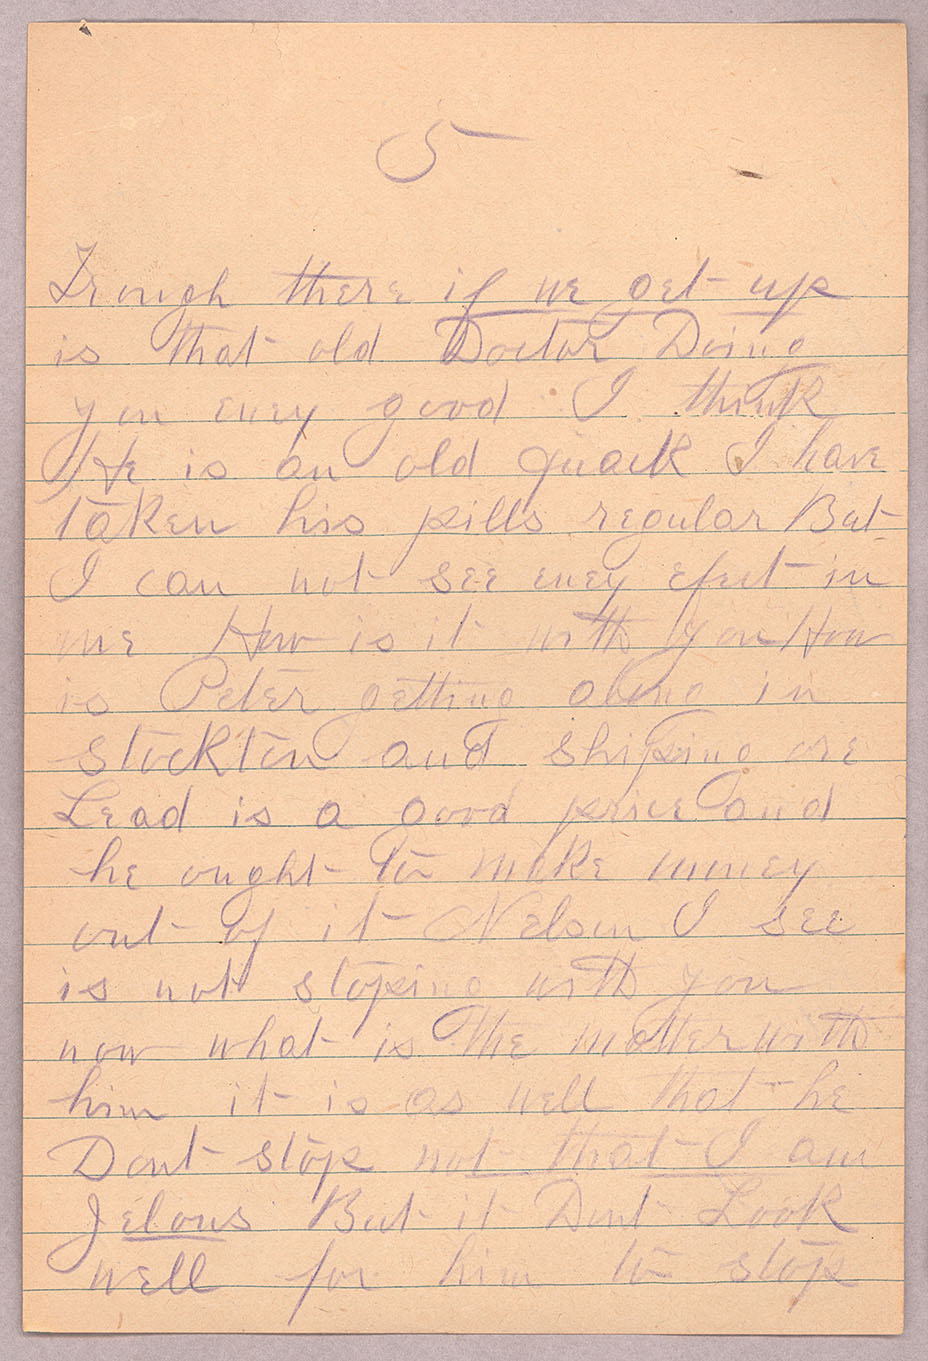 5
Trough there if we get up
is that old Doctor Doing
you eney good I think
He is an old quack I have
taken his pills regular But
I can not see eney efect in
me How is it with you How
is Peter getting along in
Stockton and shiping ore
Lead is a good price and
he ought to make money
out of it Nelson I see
is not stoping with you
now what is the matter with
him it is as well that he
Dont stop not that I am
Jelous But it Dont Look
well for him to stop